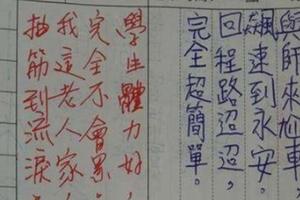 與師來尬車，
飆速到永安。
回程路迢迢，
完全超簡單。
學生體力好，
完全不會累
我這老人家
抽筋到流淚